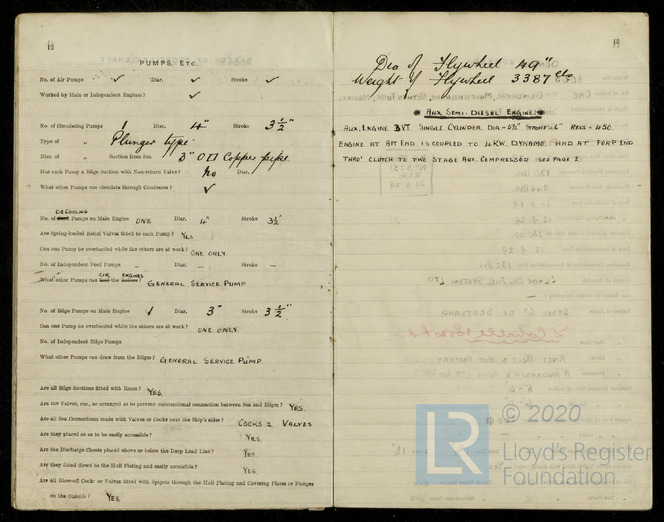 12
PUMPS, ETC.
No. of Air Pumps ✓ Diar. ✓ Stroke ✓
Worked by Main or Independent Engines? ✓
No. of Circulating Pumps 1 Diar. 4" Stroke 3 1/2"
Type of " Plunger type.
Diar. of " Suction from Sea 3" O.D. Copper pipe.
Has each Pump a Bilge Suction with Non-return Valve? No Diar.
What other Pumps can circulate through Condenser? ✓
No. of CIR COOLING Pumps on Main Engine ONE Diar. 4" Stroke 3½"
Are Spring-loaded Relief Valves fitted to each Pump? YES
Can one Pump be overhauled while the others are at work? ONE ONLY.
No. of Independent Feed Pumps – Diar. – Stroke –
What other Pumps can CIR ENGINES GENERAL SERVICE PUMP.
No. of Bilge Pumps on Main Engine 1 Diar. 3" Stroke 3 1/2"
Can one Pump be overhauled while the others are at work? ONE ONLY.
No. of Independent Bilge Pumps
What other Pumps can draw from the Bilges? GENERAL SERVICE PUMP.
Are all Bilge Suctions fitted with Roses? YES.
Are the Valves, etc., so arranged as to prevent unintentional connection between Sea and Bilges? YES.
Are all Sea Connections made with Valves or Cocks next the Ship's sides? COCKS & VALVES
Are they placed so as to be easily accessible? YES.
Are the Discharge Chests placed above or below the Deep Load Line? YES.
Are they fitted direct to the Hull Plating and easily accessible? YES.
Are all Blow-off Cocks or Valves fitted with Spigots through the Hull Plating and Covering Plates or Flanges
on the Outside? YES.
Dia of Flywheel 49"
Weight of Flywheel 3387 lbs
AUX. SEMI-DIESEL ENGINE
AUX. ENGINE SINGLE CYLINDER DIA - 5½" STROKE - 6" REVS - 450.
ENGINE AT AFT END IS COUPLED TO 4 KW. DYNAMO AND AT FORD END
THRO' CLUTCH TO THE STAGE AUX. COMPRESSOR SEE PAGE 2
LR © 2020
Lloyd's Register
Foundation